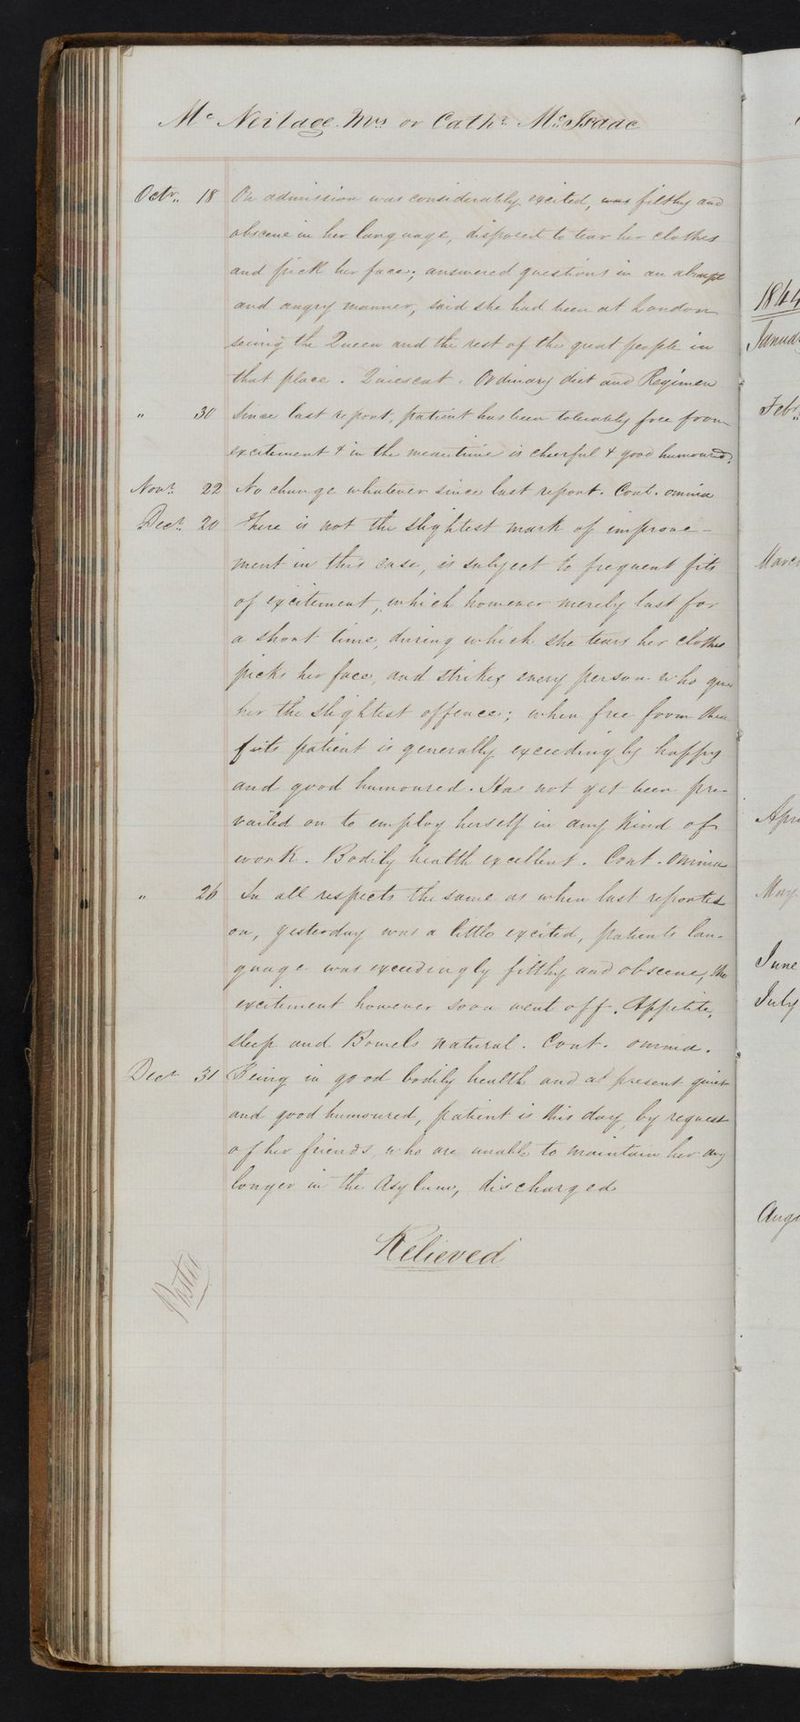 Mc Neilage Mrs or Cathe McIsaac
Octr. 18 On admission was considerably excited, was filthy and
obscene in her language, disposed to tear her clothes
and pick her face; answered questions in an abrupt
and angry manner, said she had been at London
seeing the Queen and the rest of the great people in
that place. Quiescat. Ordinary diet and Regimen
" 30 Since last report, patient has been tolerably free from
excitement & in the meantime is cheerful & good humoured.
Novr. 22 No change whatever since last report. Cont. omnia
Decr. 20 There is not the slightest mark of improve-
ment in this case, is subject to frequent fits
of excitement, which however merely last for
a short time, during which she tears her clothes
picks her face, and strikes every person who gives
her the slightest offence; when free from these
fits patient is generally exceedingly happy
and good humoured. Has not yet been pre-
vailed on to employ herself in any kind of
work. Bodily health excellent. Cont. omnia
" 26 In all respects the same as when last reported
on, yesterday was a little excited, patients lan-
guage was exceedingly filthy and obscene, the
excitement however soon went off. Appetite,
sleep and Bowels natural. Cont. omnia.
Decr 31 Being in good bodily health and at present quiet
and good humoured, patient is this day, by request
of her friends, who are unable to maintain her any
longer in the Asylum, discharged
Relieved
Posted
1844
Januar
Feb.
March
Apri
May
June
July
Augu